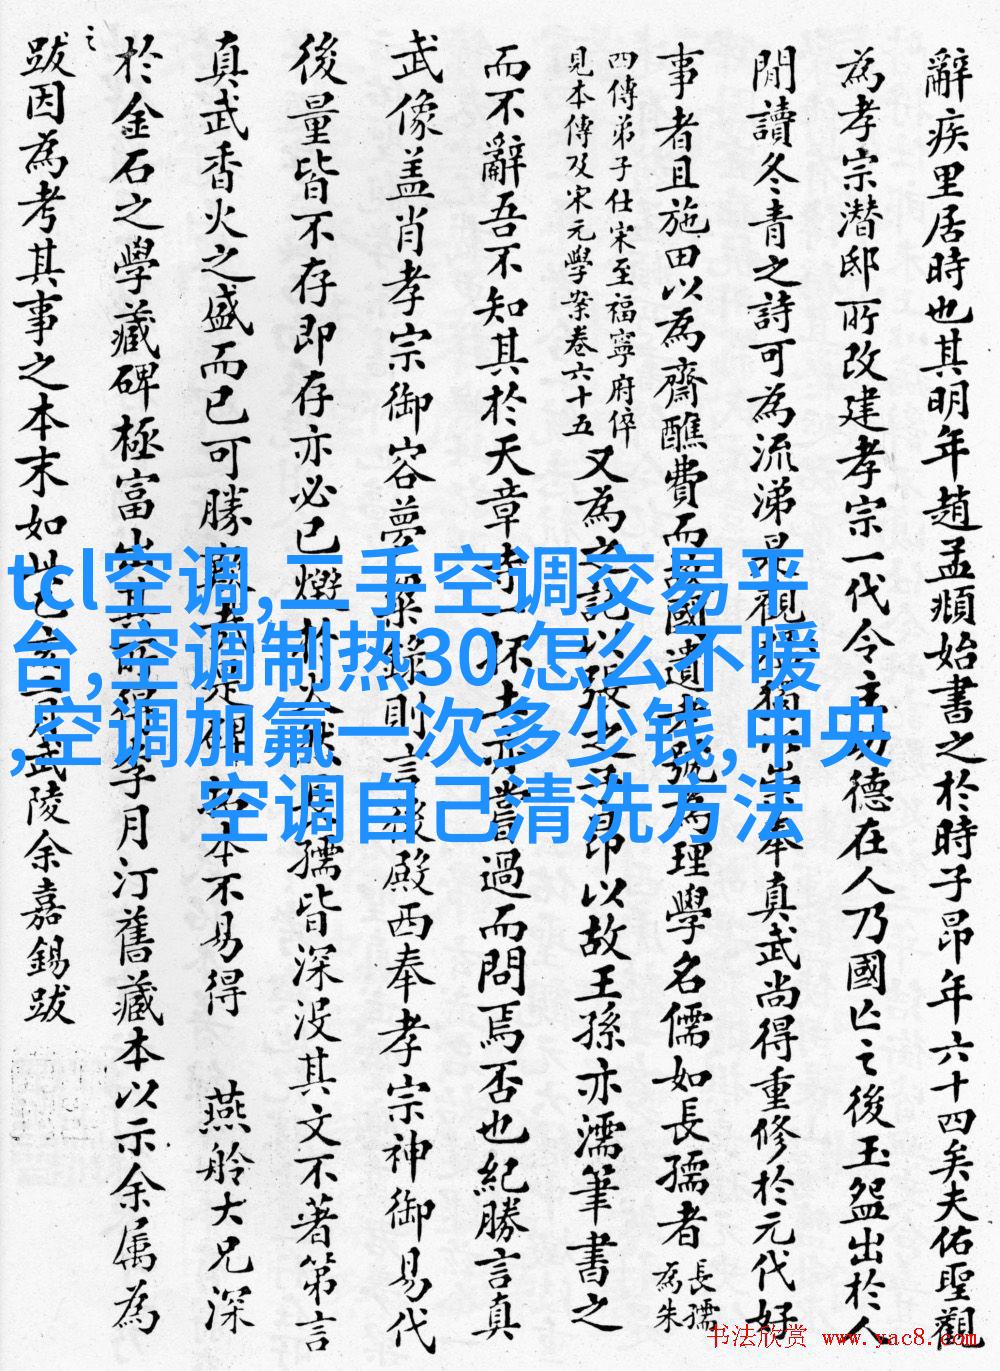 辭疾里居時也其明年趙孟頫始書之於時子昂年六十四矣夫佑聖觀
為孝宗潛邸所改建孝宗一代令主功德在人乃國亡之後玉盌出於人
閒讀冬青之詩可為流涕是觀崇奉真武尚得重修於元代好
事者且施田以為齋醮費而故國遺老號為理學名儒如長孺者長孺為朱
四傳弟子仕宋至福寧府倅
見本傳及宋元學案卷六十五
又為之記以張之子昂以故王孫亦濡筆書之
而不辭吾不知其於天章寺一抔土亦嘗過而問焉否也紀勝言真
武像蓋肖孝宗御容夢粱錄則言後殿西奉孝宗神御易代
後量皆不存即存亦必已燬於火孺皆深沒其文不著第言
真武香火之盛而已可勝歎哉是碑拓本不易得 燕舲大兄深
於金石之學藏碑極富出其所得李月汀舊藏本以示余属為
之
跋因為考其事之本末如此己亥二月武陵余嘉錫跋
tcl空调,二手空调交易平
台,空调制热30 怎么不暖
,空调加氟一次多少钱,中央
空调自己清洗方法
书法欣赏 www.yac8.com